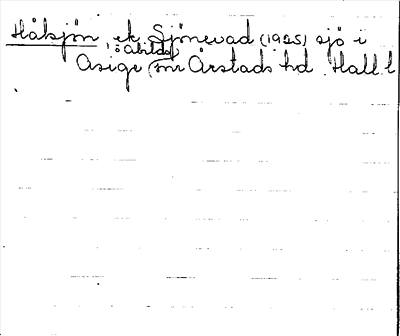 Håksjön, ek. Sjönevad (1925) sjö i
o Abilds
Asige snr Årstads hd. Hall. l